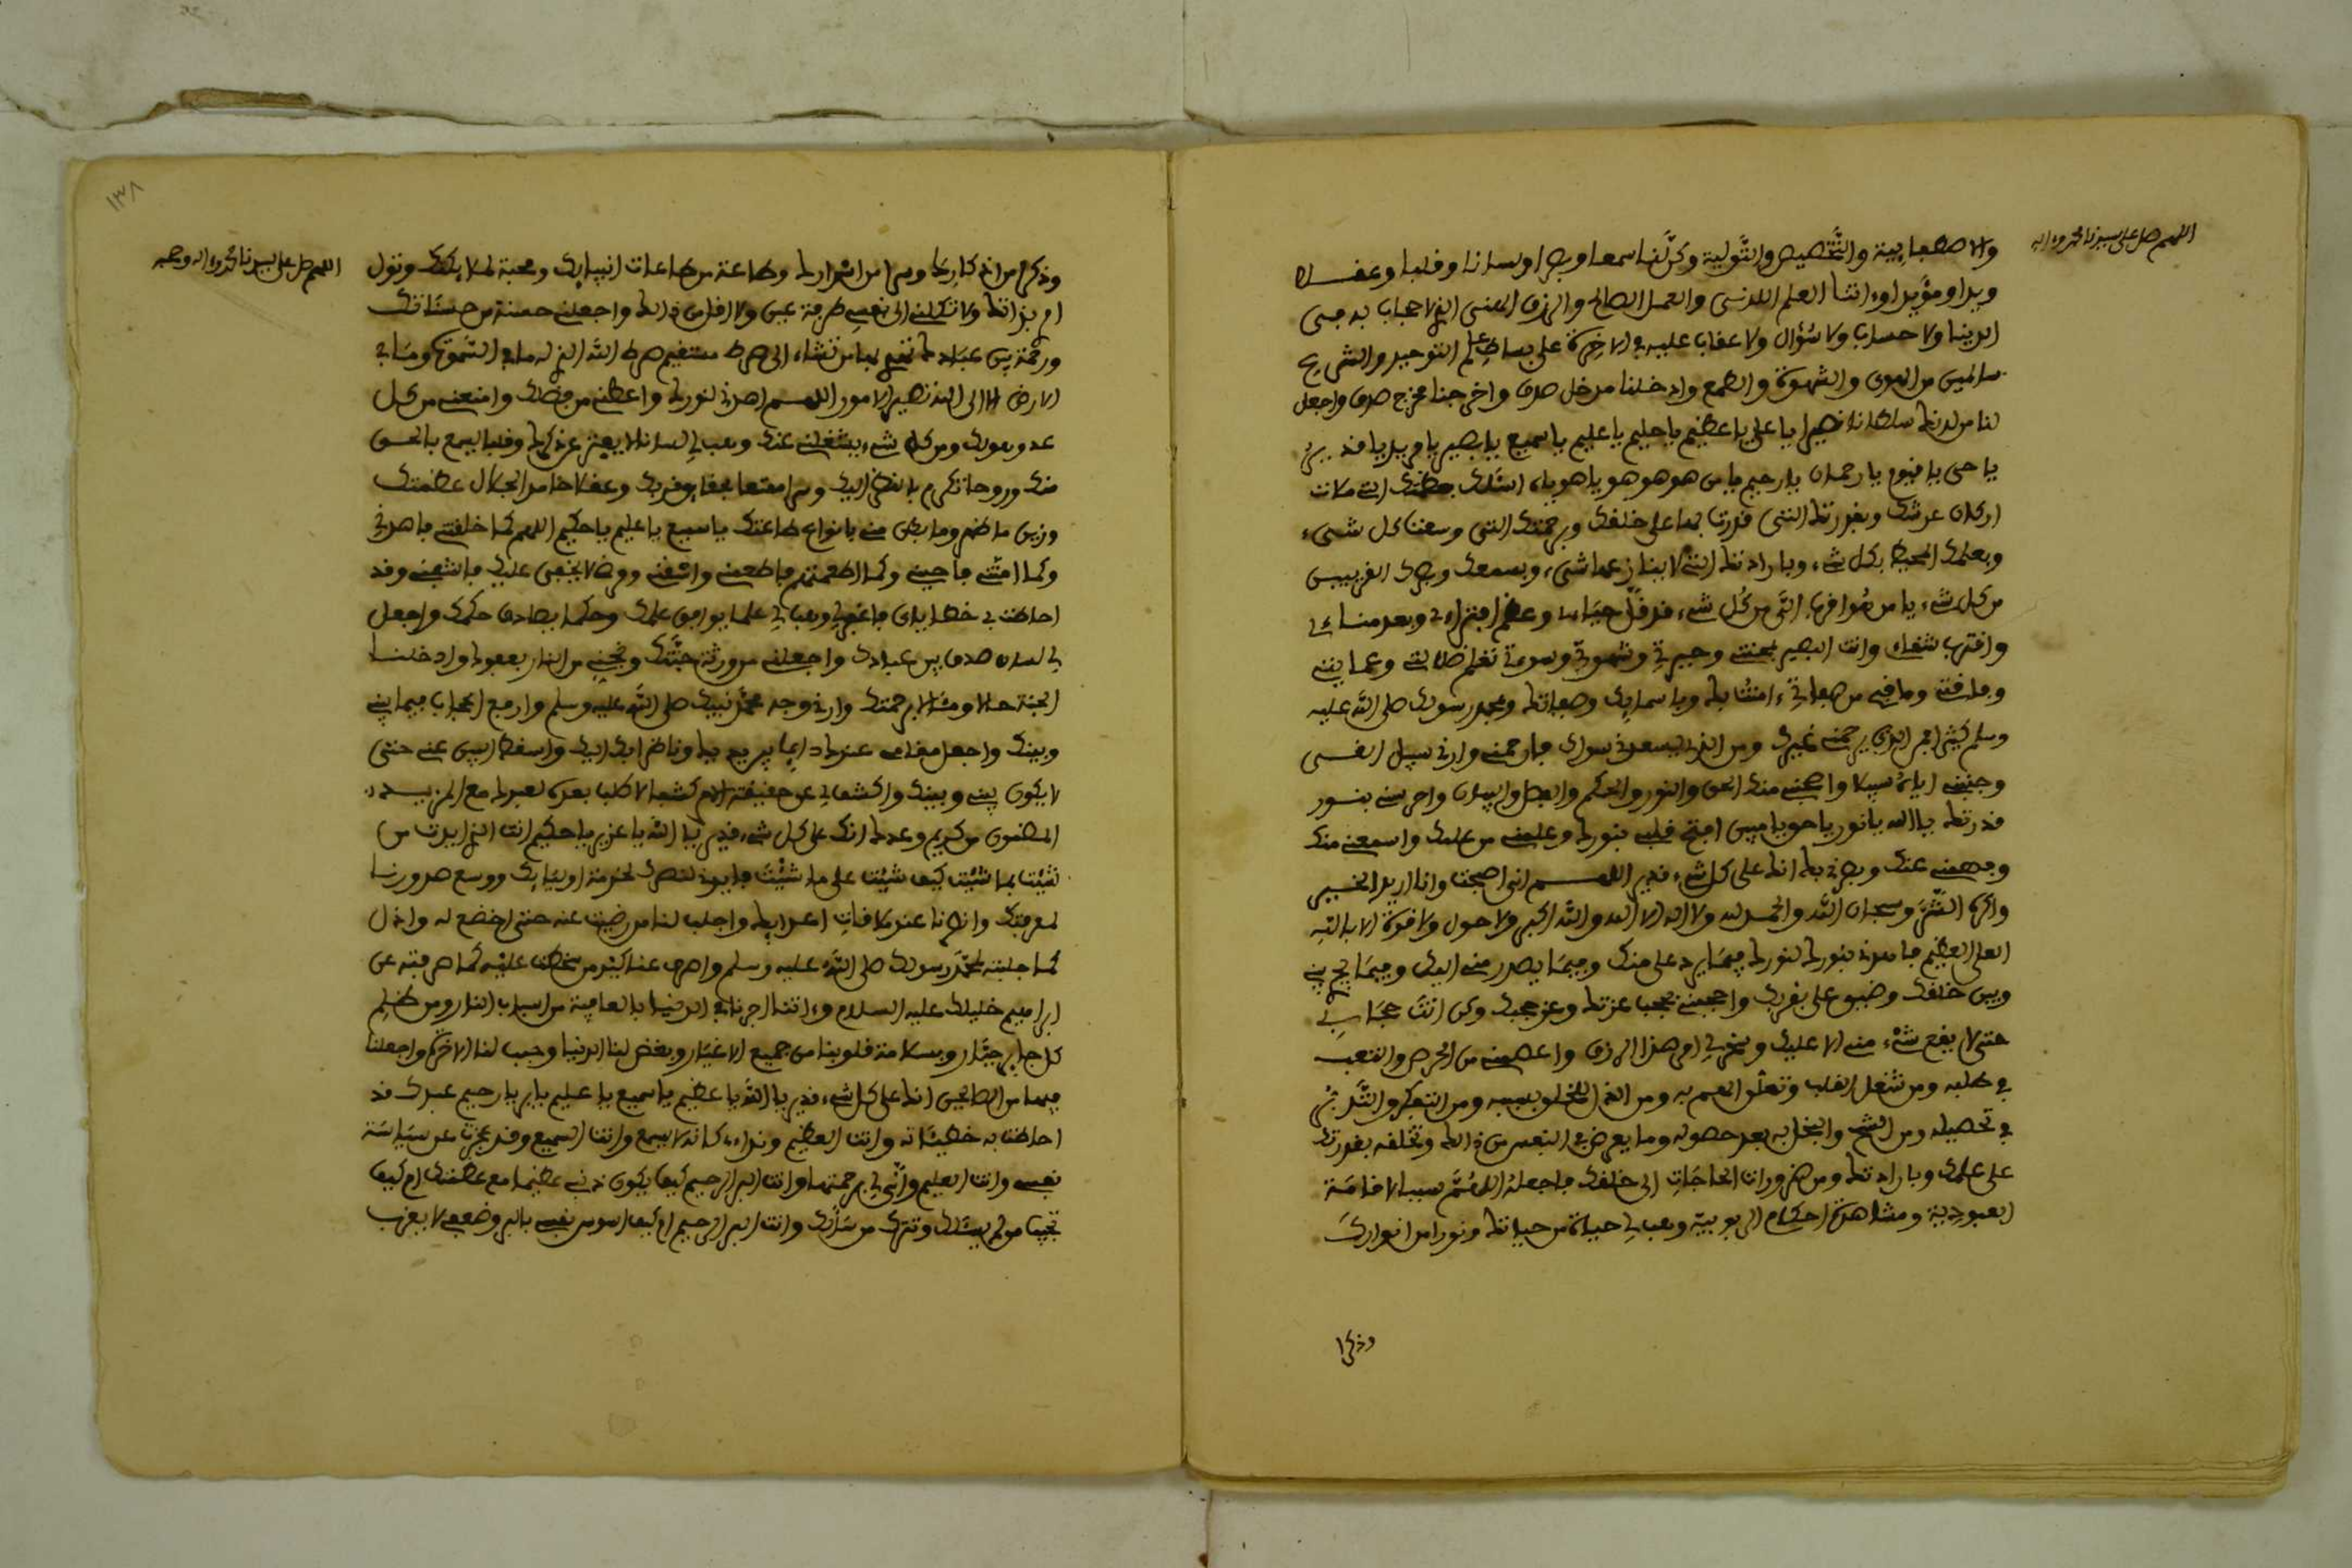 اللهم صل على سيدنا محمد واله
والاصطفايية والتخصيص والتولية وكن لنا سمعا وبصرا ولسانا وقلبا وعقلا
ويدا ومؤيدا وءاتنا العلم اللدني والعمل الصالح والرزق الهني الذي لا حجاب به في
الدنيا ولا حساب ولا سؤال ولا عقاب عليه في الاخرة على بساط علم التوحيد والشرع
سالمين من الهوى والشهوة والطمع وادخلنا مدخل صدق واخرجنا مخرج صدق واجعل
لنا من لدنك سلطانا نصيرا يا علي يا عظيم يا حليم يا عليم يا سميع يا بصير يا مريد يا قدير
يا حي يا قيوم يا رحمان يا رحيم يا من هو هو هو يا هو اسئلك بعظمتك التي ملات
اركان عرشك وبقدرتك التي قدرت بها على خلقك وبرحمتك التي وسعت كل شيء
وبعلمك المحيط بكل شيء وبارادتك التي لا ينازعها شيء وبسمعك وبصرك القريبين
من كل شيء يا من هو اقرب الي من كل شيء قد قل حياءي وعظم افتراءي وبعد منائي
واقترب شقاءي وانت البصير بمحنتي وحيرتي وشهوتي وسوءتي تعلم ضلالتي وعمايتي
وفاقتي وما في من صفاتي ءامنت بك وباسمايك وصفاتك وبمحمد رسولك صلى الله عليه
وسلم فمن ذا الذي يرحمني غيرك ومن الذي يسعدني سواك فارحمني وارني سبيل الرشد
وجنبني سبيلا واصحبني منك الحق والنور والحكم والفصل والبيان واحرسني بنور
قدرتك يا الله يا نور يا حق يا مبين افتح قلبي بنورك وعلمني من علمك واسمعني منك
وفهمني عنك وبصرني بك انك على كل شيء قدير اللهم اني اصبحت وانا اريد الخير
واكره الشر وسبحان الله والحمد لله ولا اله الا الله والله اكبر ولا حول ولا قوة الا بالله
العلي العظيم فاهدني بنورك لنورك فيما يرد علي منك وفيما يصدر مني اليك وفيما يجري بيني
وبين خلقك وضيق علي بقربك واحجبني بحجب عزتك وعز حجبك وكن انت حجابي
حتى لا يقع شيء مني الا عليك وسخر لي امر هذا الرزق واعصمني من الحرص والتعب
في طلبه ومن شغل القلب وتعلق الهم به ومن الذل للخلق بسببه ومن التفكر والتدبير
في تحصيله ومن الشح والبخل به بعد حصوله وما يعرض في النفس من ذالك وتخلقه بقدرتك
على علمك وبارادتك ومن ضرورات الحاجات الى خلقك فاجعله اللهم سببا لاقامة
العبودية ومشاهدة احكام الربوبية وهب لي حياة من حياتك ونورا من انوارك
وذكرا
١٣٨
اللهم صل على سيدنا محمد واله وصحبه
وذكرا من اذكارك وسرا من اسرارك وطاعة من طاعات انبيايك ومحبة لملايكتك وتول
امري بذاتك ولا تكلني الى نفسي طرفة عين ولا اقل من ذالك واجعلني حسنة من حسناتك
ورحمة بين عبادك تهدي بها من تشاء الى صرط مستقيم صرط الله الذي له ما في السموت وما في
الارض الا الى الله تصير الامور اللهم اهدني لنورك واعطني من فضلك وامنعني من كل
عدو هو لك ومن كل شيء يشغلني عنك وهب لي لسانا لا يفتر عن ذكرك وقلبا يسمع بالحق
منك وروحا تكرم بالنظر اليك وسرا ممتعا بحقايق قربك وعقلا خامدا لجلال عظمتك
وزين ما ظهر وما بطن مني بانواع طاعتك يا سميع يا عليم يا حكيم اللهم كما خلقتني فاهدني
وكما امتني فاحيني وكما اطعمتني فاطعمني واسقني ومرضي لا يخفى عليك فاشفني وقد
احاطت بي خطاياي فاغفر لي وهب لي علما يوافق علمك وحكما يصادق حكمك واجعل
لي لسان صدق بين عبادك واجعلني من ورثة جنتك ونجني من النار بعفوك وادخلنا
الجنة حالا ومثالا برحمتك وارني وجه محمد نبيك صلى الله عليه وسلم وارفع الحجاب فيما بيني
وبينك واجعل مقامي عندك دايما بين يديك وناظرا بك اليك واسقط البين عني حتى
لا يكون بيني وبينك واكشف لي عن حقيقة الامر كشفا لا طلب بعده لعبدك مع المزيد
المضمون من كريم وعدك انك على كل شيء قدير يا الله يا عزيز يا حكيم انت الذي ايدت من
شئت بما شئت كيف شئت على ما شئت فايدنا بنصرك لخدمة اوليايك ووسع صدورنا
لمعرفتك عند ملاقات اعدايك واجلب لنا من رضيت عنه حتى اخضع له واذل
كما جلبته لمحمد رسولك صلى الله عليه وسلم واصرف عنا كيد من سخطت عليه كما صرفته عن
ابراهيم خليلك عليه السلام وءاتنا اجرنا في الدنيا بالعافية من اسباب النار ومن ظلم
كل جاير جبار وبسلامة قلوبنا من جميع الاغيار وبغض لنا الدنيا وحبب لنا الاخرة واجعلنا
فيها من الصالحين انك على كل شيء قدير يا الله يا عظيم يا سميع يا عليم يا بر يا رحيم عبدك قد
احاطت به خطيئاته وانت العظيم ونداءي كانه لا يسمع وانت السميع وقد عجزت عن سياسة
نفسي وانت العليم وانى لي برحمتها وانت البر الرحيم كيف يكون ذنبي عظيما مع عظمتك ام كيف
تجيب من لم يسئلك وتترك من سألك وانت البر الرحيم ام كيف اسوس نفسي بالبر وضعفي لا يعزب